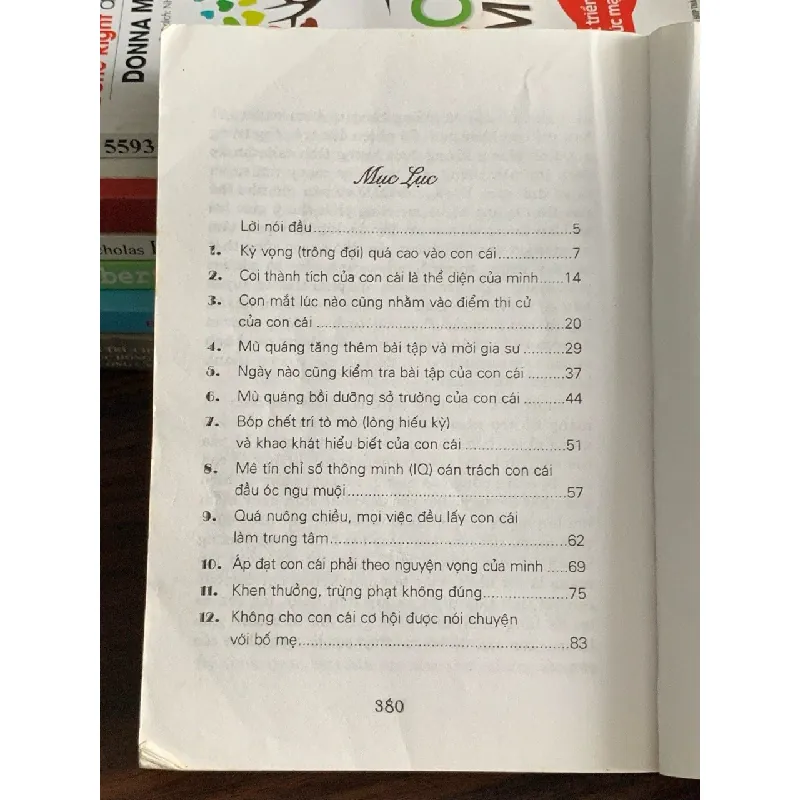 DONNA M
5593
cholas
ber
Mục Lục
Lời nói đầu......5
1. Kỳ vọng (trông đợi) quá cao vào con cái......7
2. Coi thành tích của con cái là thể diện của mình......14
3. Con mắt lúc nào cũng nhằm vào điểm thi cử
của con cái......20
4. Mù quáng tăng thêm bài tập và mời gia sư......29
5. Ngày nào cũng kiểm tra bài tập của con cái......37
6. Mù quáng bồi dưỡng sở trường của con cái......44
7. Bóp chết trí tò mò (lòng hiếu kỳ)
và khao khát hiểu biết của con cái......51
8. Mê tín chỉ số thông minh (IQ) oán trách con cái
đầu óc ngu muội......57
9. Quá nuông chiều, mọi việc đều lấy con cái
làm trung tâm......62
10. Áp đạt con cái phải theo nguyện vọng của mình......69
11. Khen thưởng, trừng phạt không đúng......75
12. Không cho con cái cơ hội được nói chuyện
với bố mẹ......83
380